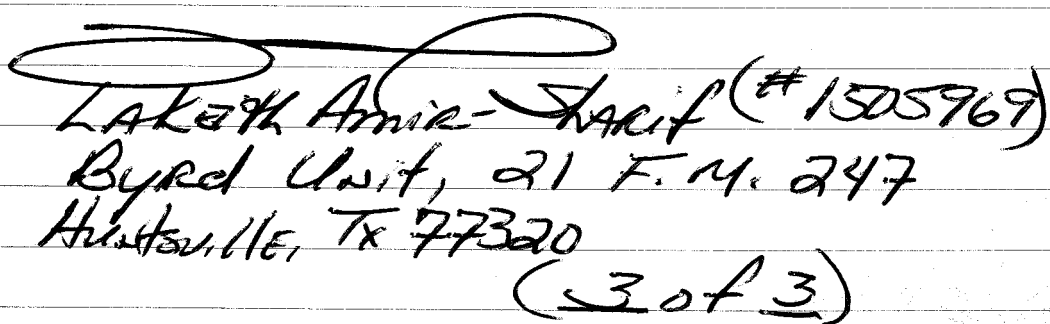 LaKeith Amir-Sharif (#1505969)
Byrd Unit, 21 F.M. 247
Huntsville, Tx 77320
(3 of 3)